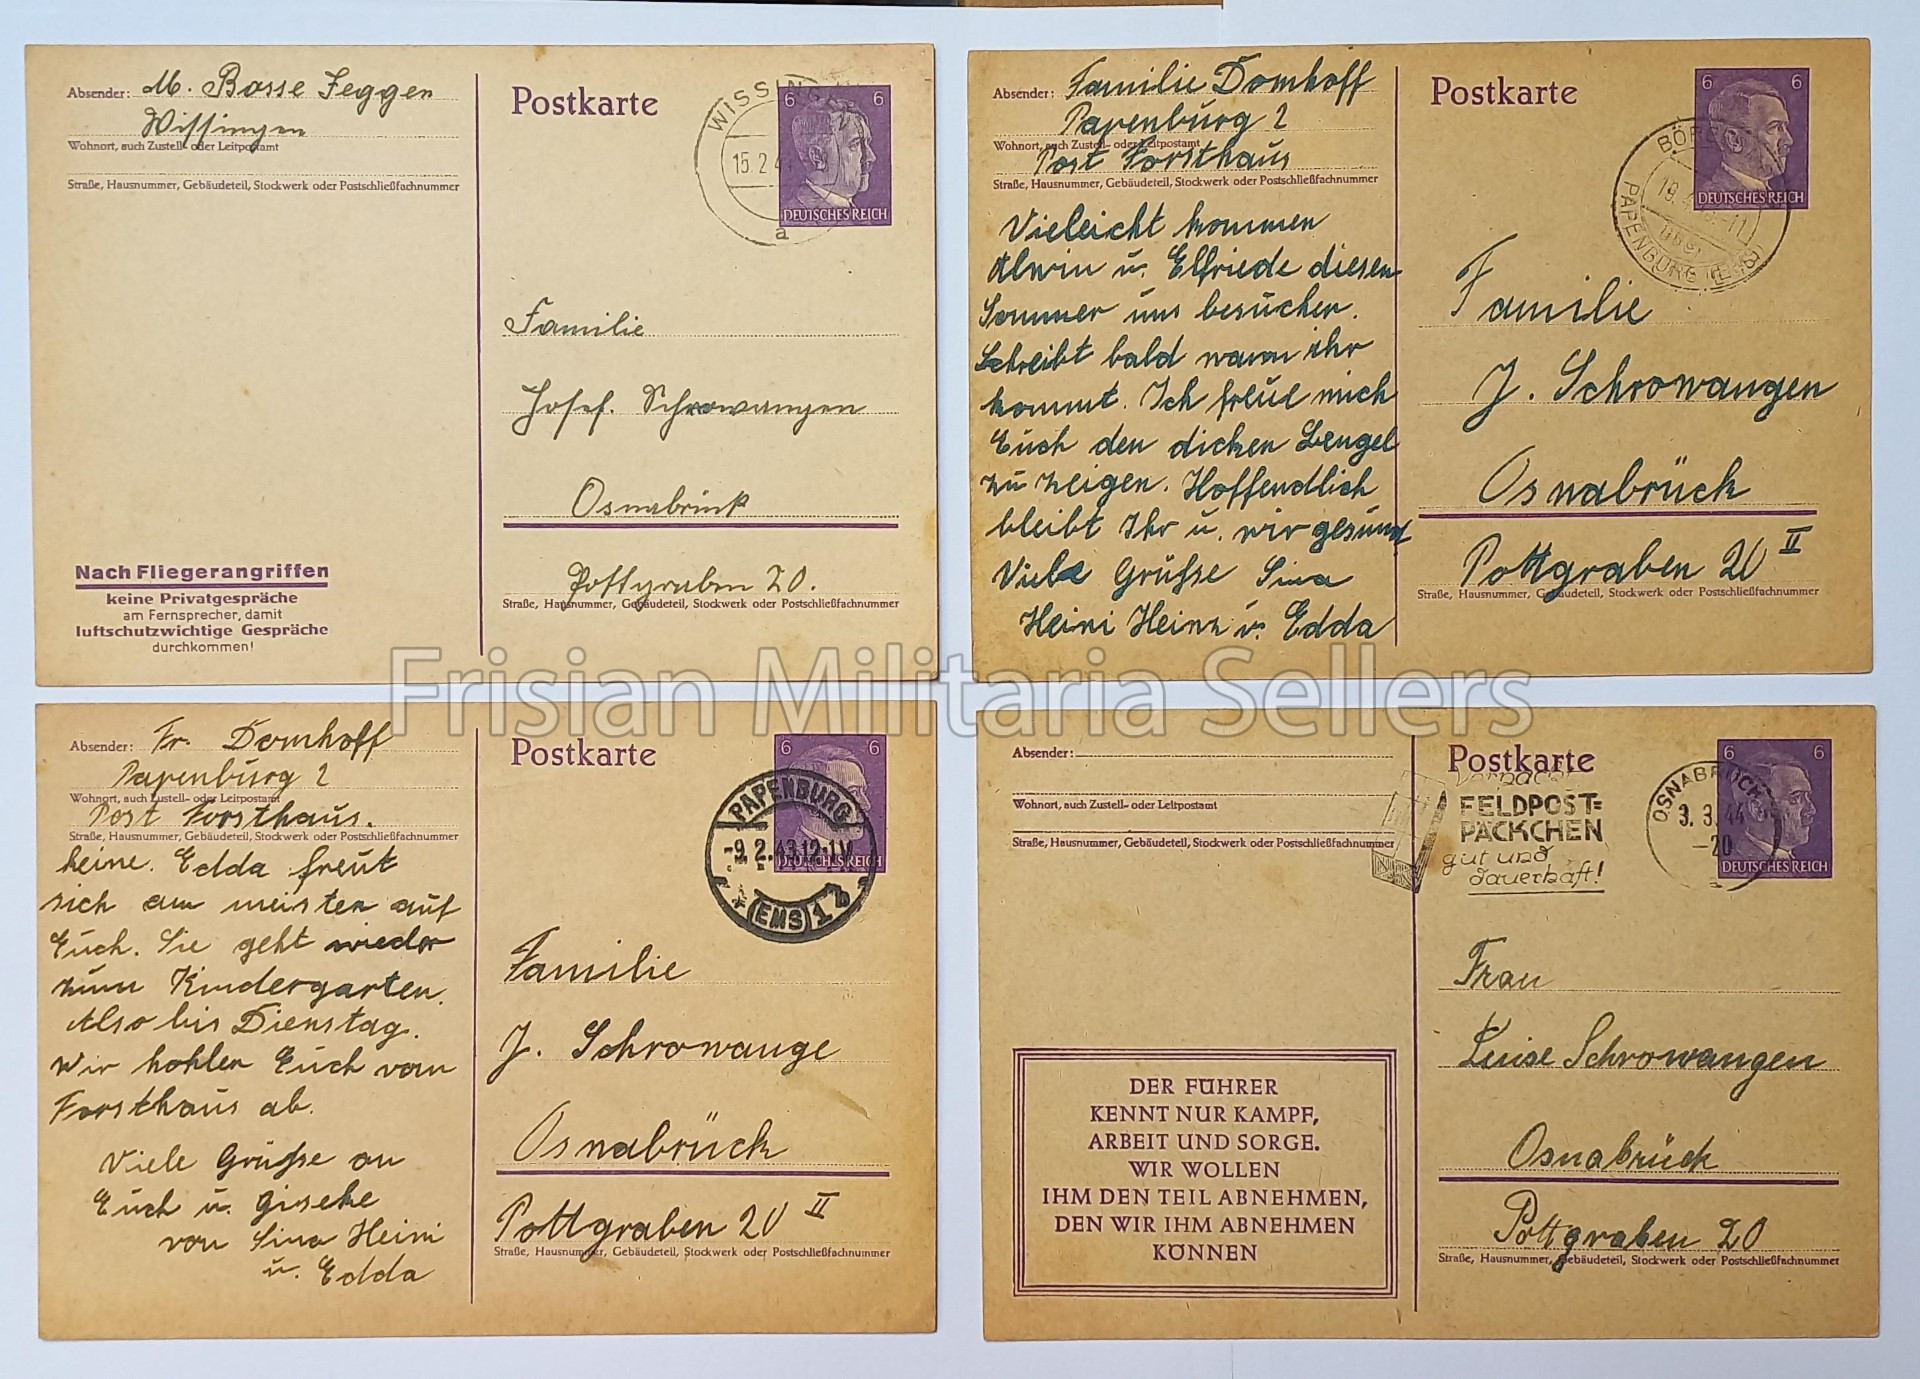 Absender: M. Bosse Jeggen
Wissingen
Wohnort, auch Zustell- oder Leitpostamt
Straße, Hausnummer, Gebäudeteil, Stockwerk oder Postschließfachnummer
Nach Fliegerangriffen
keine Privatgespräche
am Fernsprecher, damit
luftschutzwichtige Gespräche
durchkommen!
Postkarte
6 6
DEUTSCHES REICH
15.2.4
a
Familie
Josef. Schrowangen
Osnabrück
Pottgraben 20.
Straße, Hausnummer, Gebäudeteil, Stockwerk oder Postschließfachnummer
Absender: Familie Domhoff
Papenburg 2
Wohnort, auch Zustell- oder Leitpostamt
Post Forsthaus
Straße, Hausnummer, Gebäudeteil, Stockwerk oder Postschließfachnummer
Vieleicht kommen
Alwin u. Elfriede diesen
Sommer uns besuchen.
Schreibt bald wann ihr
kommt. Ich freue mich
Euch den dicken Bengel
zu zeigen. Hoffendlich
bleibt Ihr u. wir gesund
Viele Grüße Sina
Heini Heinz u. Edda
Postkarte
6 6
DEUTSCHES REICH
über
PAPENBURG (EMS)
Familie
J. Schrowangen
Osnabrück
Pottgraben 20 II
Straße, Hausnummer, Gebäudeteil, Stockwerk oder Postschließfachnummer
Frisian Militaria Sellers
Absender: Fr. Domhoff
Papenburg 2
Wohnort, auch Zustell- oder Leitpostamt
Post Forsthaus.
Straße, Hausnummer, Gebäudeteil, Stockwerk oder Postschließfachnummer
keine. Edda freut
sich am meisten auf
Euch. Sie geht wieder
zum Kindergarten.
Also bis Dienstag.
Wir hohlen Euch vom
Forsthaus ab.
Viele Grüße an
Euch u. Giseke
von Sina Heini
u. Edda
Postkarte
6 6
DEUTSCHES REICH
PAPENBURG
-9.2.43.12-1
(EMS) 1
Familie
J. Schrowange
Osnabrück
Pottgraben 20 II
Straße, Hausnummer, Gebäudeteil, Stockwerk oder Postschließfachnummer
Absender:
Wohnort, auch Zustell- oder Leitpostamt
Straße, Hausnummer, Gebäudeteil, Stockwerk oder Postschließfachnummer
DER FÜHRER
KENNT NUR KAMPF,
ARBEIT UND SORGE.
WIR WOLLEN
IHM DEN TEIL ABNEHMEN,
DEN WIR IHM ABNEHMEN
KÖNNEN
Postkarte
FELDPOST=
PÄCKCHEN
gut und
dauerhaft!
6 6
DEUTSCHES REICH
OSNABRÜCK
3.3.44
-20
Frau
Luise Schrowangen
Osnabrück
Pottgraben 20
Straße, Hausnummer, Gebäudeteil, Stockwerk oder Postschließfachnummer